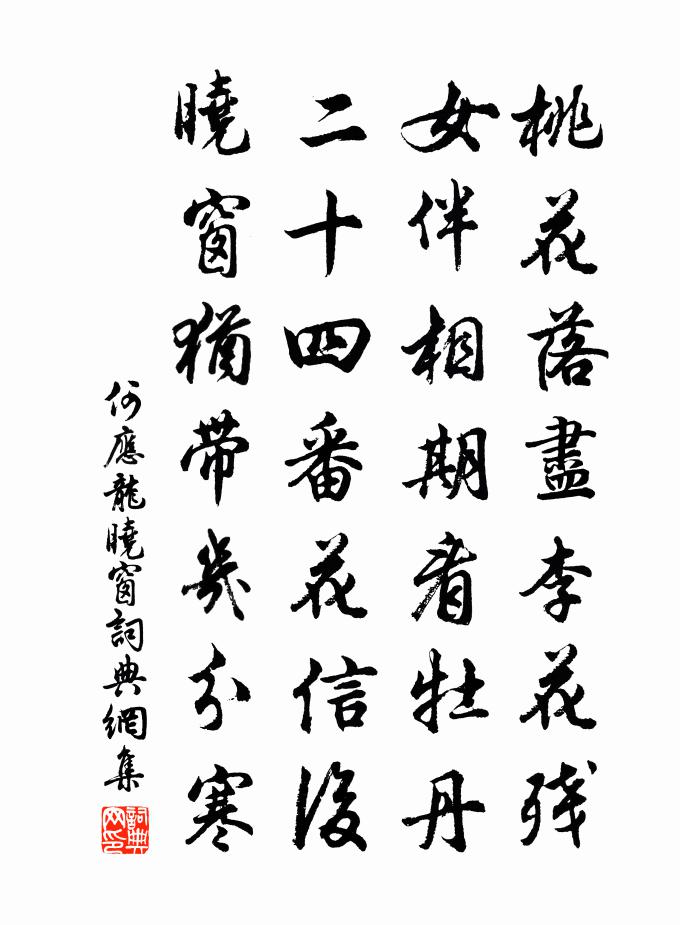 桃花落盡李花殘
女伴相期看牡丹
二十四番花信後
曉窗猶帶幾分寒
何應龍曉窗詞典網集
詞典网印